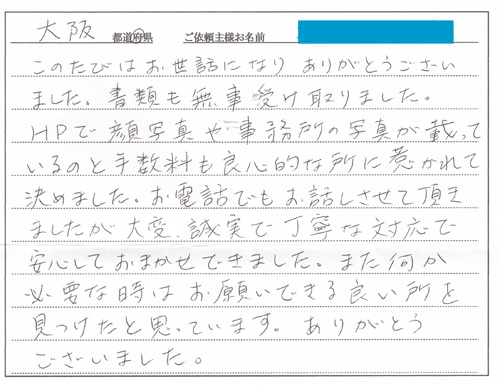 大阪 都道府県 ご依頼主様お名前
このたびはお世話になり ありがとうござい
ました。書類も無事受け取りました。
HPで顔写真や事務所の写真が載って
いるのと手数料も良心的な所に惹かれて
決めました。お電話でもお話しさせて頂き
ましたが大変、誠実で丁寧な対応で
安心しておまかせできました。また何か
必要な時はお願いできる良い所を
見つけたと思っています。ありがとう
ございました。